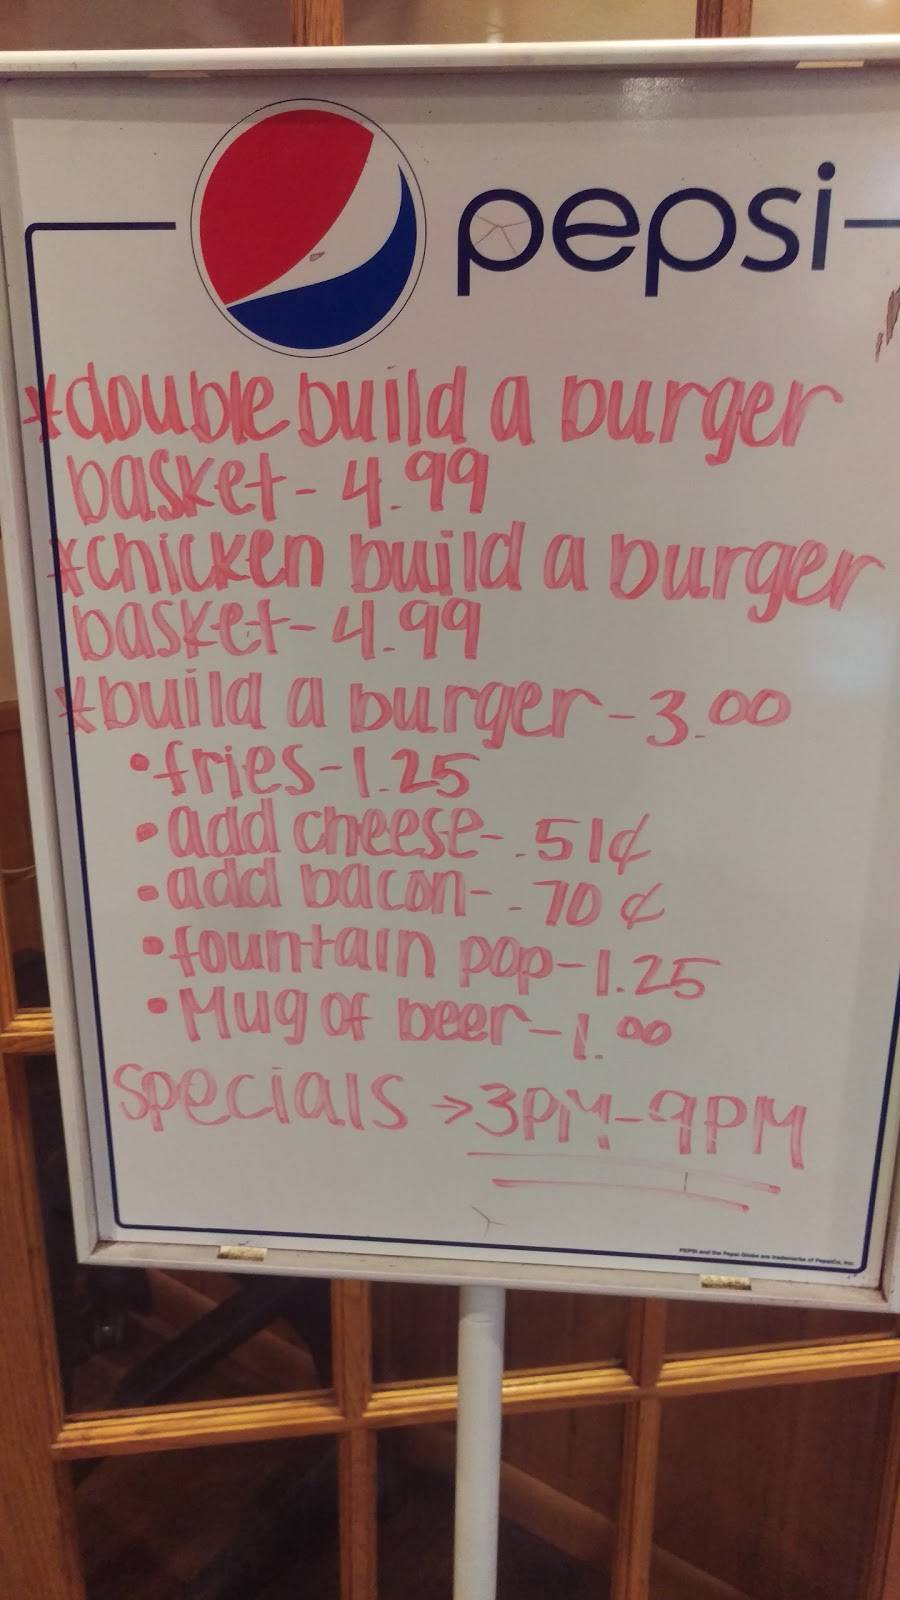 pepsi
*double build a burger
basket- 4.99
*chicken build a burger
basket- 4.99
*build a burger - 3.00
•fries-1.25
•add cheese- .51¢
•add bacon- .70¢
•fountain pop-1.25
•Mug of beer-1.00
specials → 3PM-9PM
PEPSI and the Pepsi Globe are trademarks of PepsiCo, Inc.